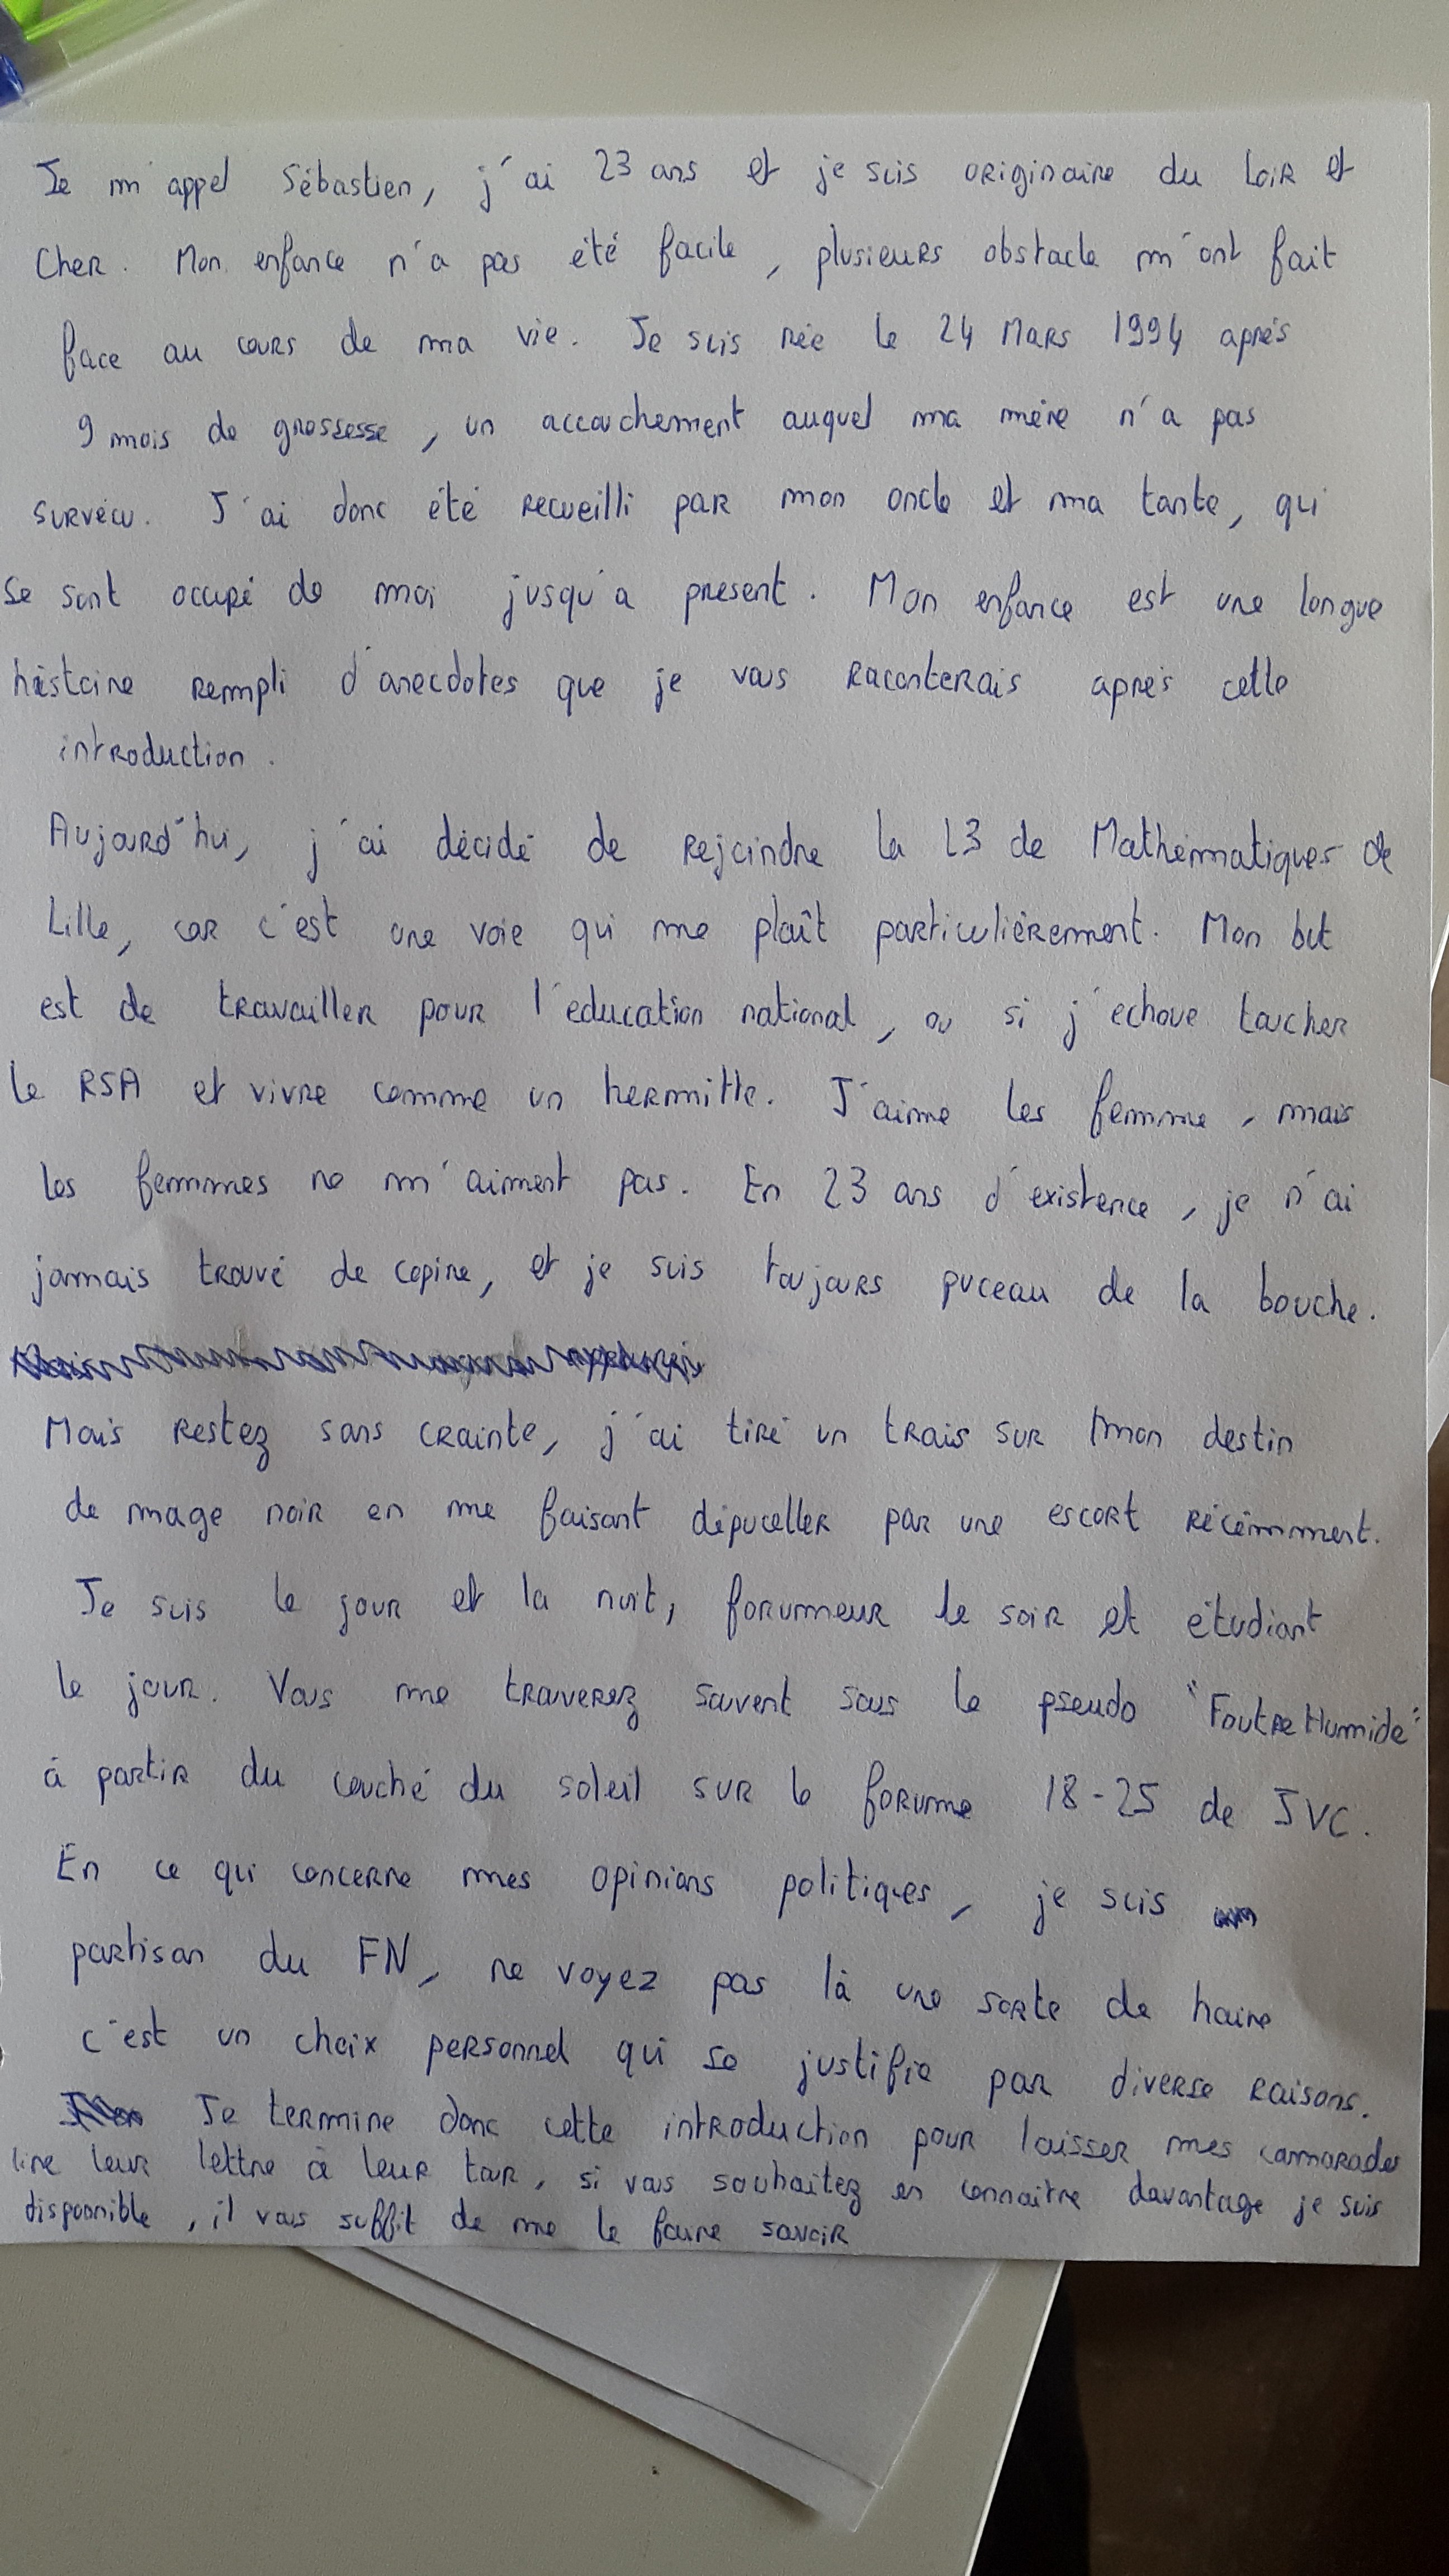 Je m'appel Sébastien, j'ai 23 ans et je suis originaire du Loir et
Cher. Mon enfance n'a pas été facile, plusieurs obstacle m'ont fait
face au cours de ma vie. Je suis née le 24 Mars 1994 aprés
9 mois de grossesse, un accouchement auquel ma mère n'a pas
survécu. J'ai donc été recueilli par mon oncle et ma tante, qui
se sont occupé de moi jusqu'a present. Mon enfance est une longue
histoire rempli d'anecdotes que je vous raconterais aprés cette
introduction.
Aujourd'hui, j'ai décidé de rejoindre la L3 de Mathématiques de
Lille, car c'est une voie qui me plaît particulièrement. Mon but
est de travailler pour l'education national, ou si j'echoue toucher
le RSA et vivre comme un hermitte. J'aime les femme, mais
les femmes ne m'aiment pas. En 23 ans d'existence, je n'ai
jamais trouvé de copine, et je suis toujours puceau de la bouche.
Mais restez sans crainte, j'ai tiré un trais sur mon destin
de mage noir en me faisant dépuceller par une escort récémment.
Je suis le jour et la nuit, forumeur le soir et étudiant
le jour. Vous me trouverez souvent sous le pseudo "FoutreHumide"
à partir du couché du soleil sur le forume 18-25 de JVC.
En ce qui concerne mes opinions politiques, je suis
partisan du FN, ne voyez pas là une sorte de haine
c'est un choix personnel qui se justifie par diverse raisons.
Je termine donc cette introduction pour laisser mes camarades
lire leur lettre à leur tour, si vous souhaitez en connaitre davantage je suis
dispoonible, il vous suffit de me le faire savoir